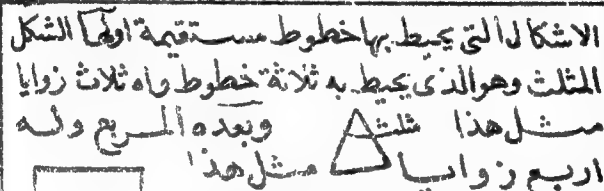 الاشكال التي يحيط بها خطوط مستقيمة اولها الشكل
المثلث وهو الذى يحيط به ثلاثة خطوط وله ثلاث زوايا
مثل هذا مثلث وبعده المربع وله
اربع زوايا مثل هذا